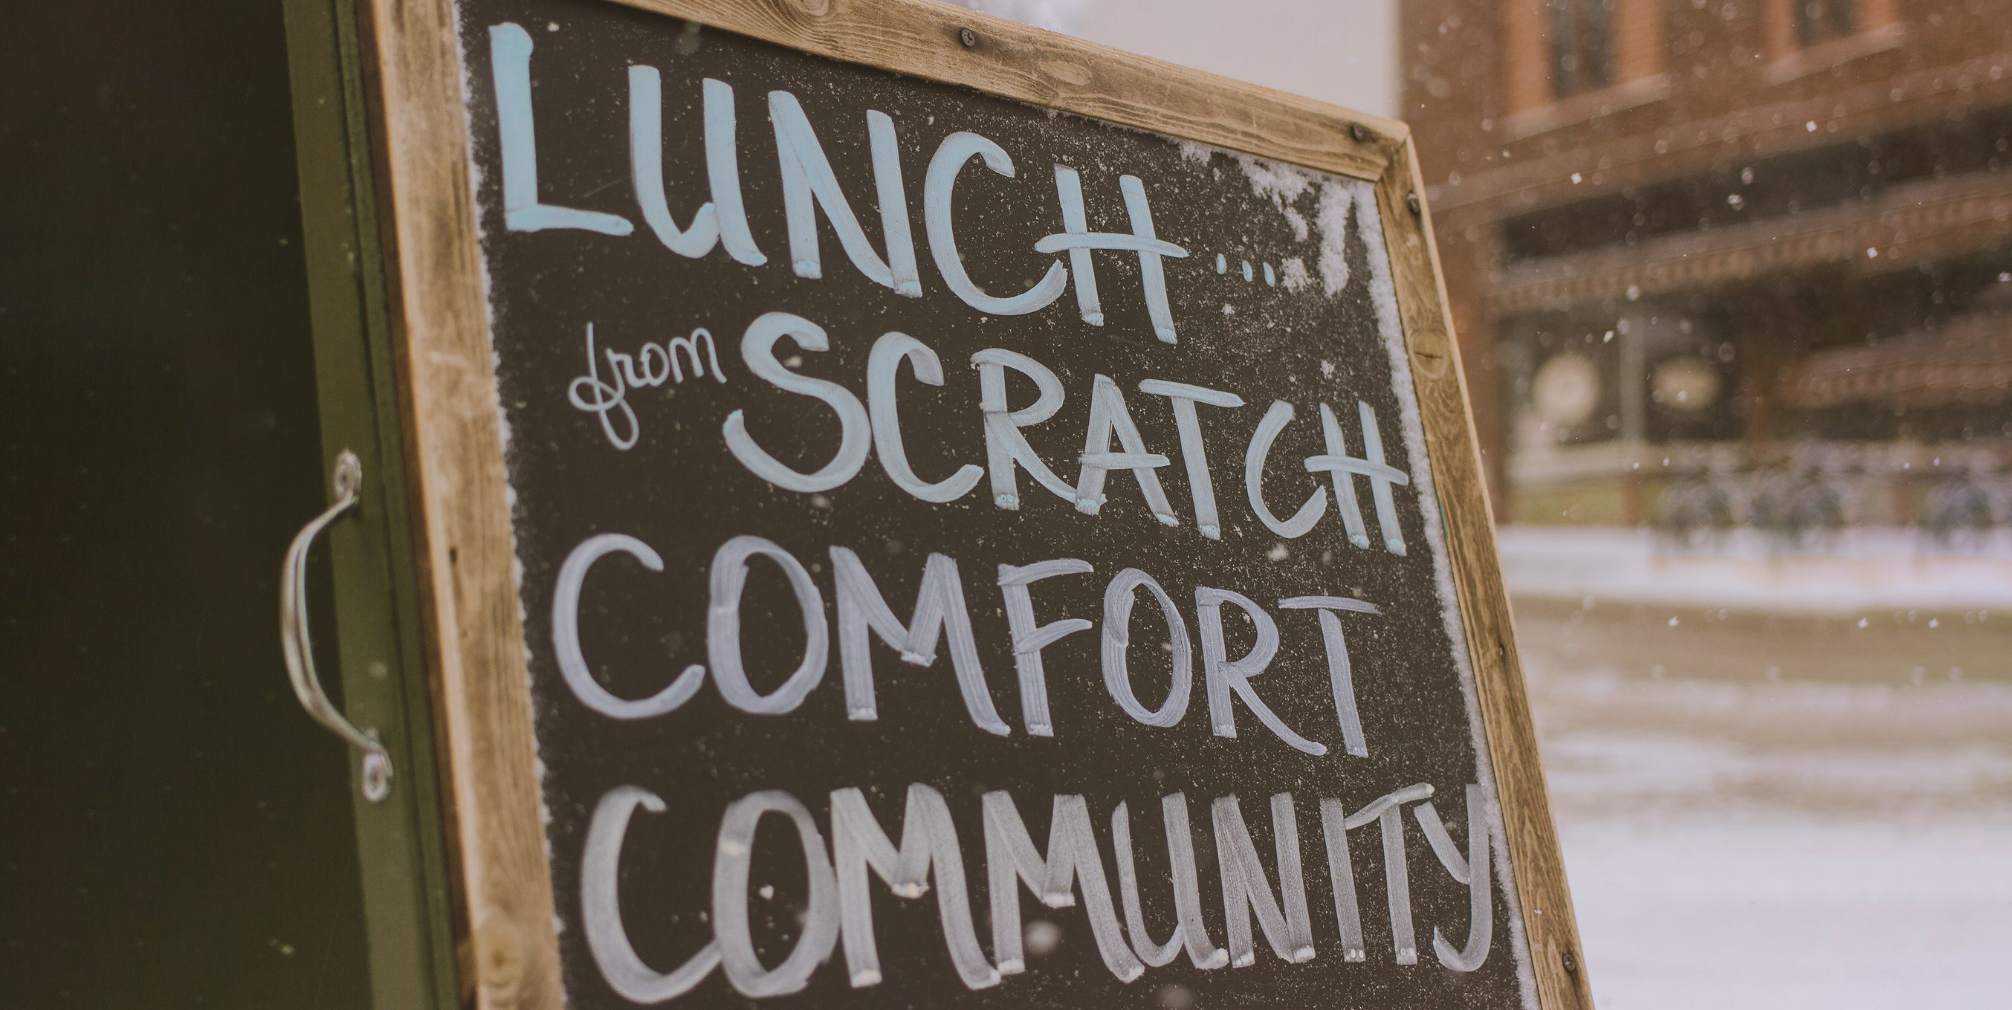 LUNCH...
from SCRATCH
COMFORT
COMMUNITY